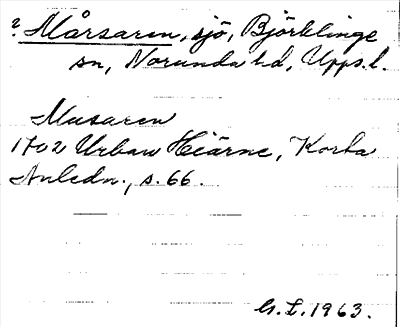 ? Mårsaren, sjö, Björklinge
sn, Norunda hd, Upps. l.
Musaren
1702 Urban Hiärne, Korta
Anledn., s. 66.
G. L. 1963.